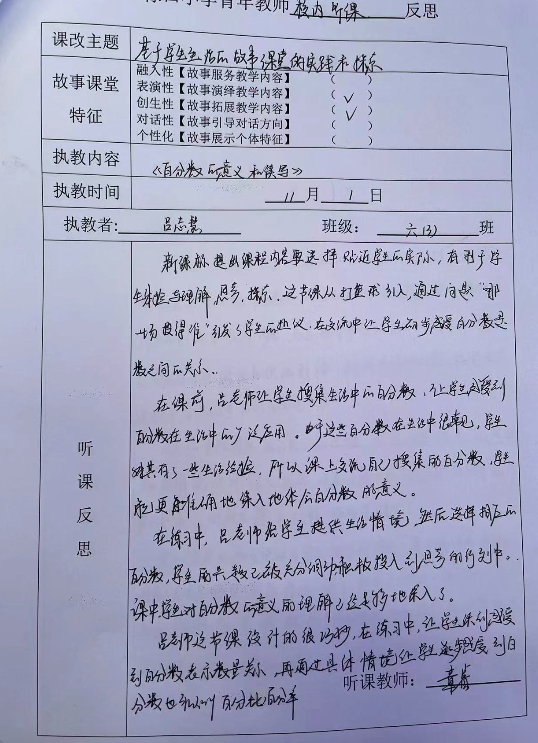 小学青年教师 校内听课 反思
课改主题 基于学生生活的故事课堂的实践和探索
故事课堂特征
融入性【故事服务教学内容】 （ ）
表演性【故事演绎教学内容】 （ √ ）
创生性【故事拓展教学内容】 （ √ ）
对话性【故事引导对话方向】 （ ）
个性化【故事展示个体特征】 （ ）
执教内容 《百分数的意义和读写》
执教时间 11 月 1 日
执教者: 吕志慧 班级: 六(3) 班
听课反思
新课标提出课程内容要选择贴近学生的实际，有利于学
生体验与理解、思考、探索。这节课从打篮球引入，通过问题“哪
一场投得准”引发了学生的热议，在交流中让学生初步感受百分数是
数之间的关系..
在课前，吕老师让学生搜集生活中的百分数，让学生感受到
百分数在生活中的广泛应用。由于这些百分数在生活中很常见，学生
对其有了一些生活经验，所以课上交流自己搜集的百分数，学生
能更准确地深入地体会百分数的意义。
在练习中，吕老师给学生提供生活情境，然后选择相应的
百分数，学生的兴趣已被充分调动，积极投入到思考的行列中。
课中学生对百分数的意义的理解已经足够地深入了。
吕老师这节课设计的很巧妙，在练习中，让学生体会感受
到百分数表示数量关系，再通过具体情境让学生逐步感受到百
分数也叫做百分比百分率
听课教师：